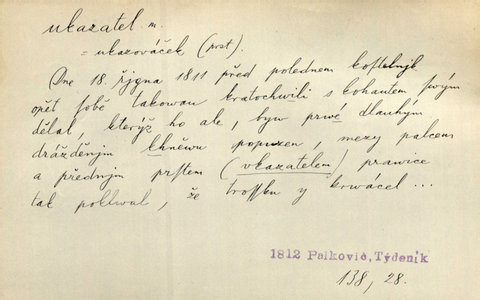 ukazatel m.
= ukazováček (prst).
Dne 18. řjgna 1811 před polednem kostelnjk
opět sobě takowau kratochwili s kohautem swým
dělal, kterýž ho ale, byw prwé dlauhým
drážděnjm k hněwu popuzen, mezy palcem
a přednjm prstem (vkazatelem) prawice
tak poklwal, že trossku y krwácel ...
1812 Palkovič, Týdeník
138, 28.